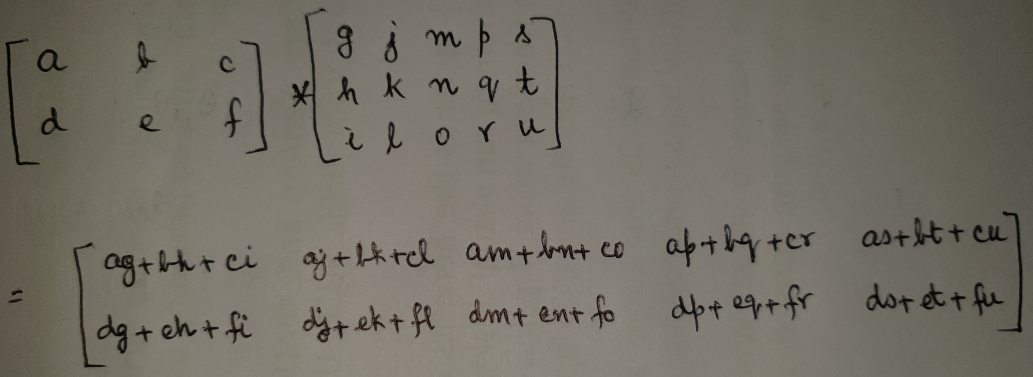 [a b c] * [g j m p s]
[d e f] [h k n q t]
[i l o r u]
= [ag+bh+ci aj+bk+cl am+bn+co ap+bq+cr as+bt+cu]
[dg+eh+fi dj+ek+fl dm+en+fo dp+eq+fr ds+et+fu]